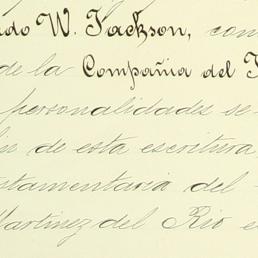 do W. Jackson, con
de la Compañia del F
personalidades se
de esta escritura
stamentaria del
Martinez del Rio e